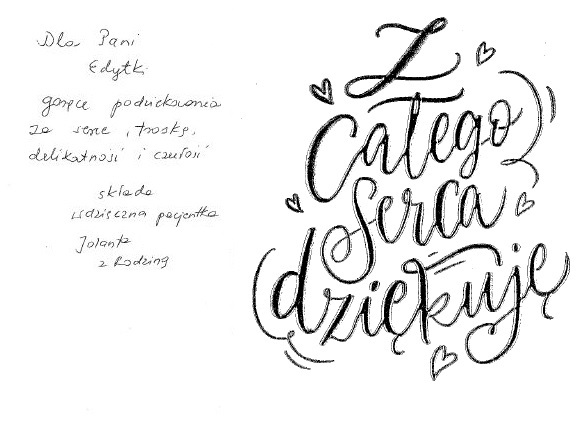 Dla Pani
Edytki
gorące podziękowania
za serce, troskę,
delikatność i czułość
składa
wdzięczna pacjentka
Jolanta
z Rodziną
Z
całego
serca
dziękuję